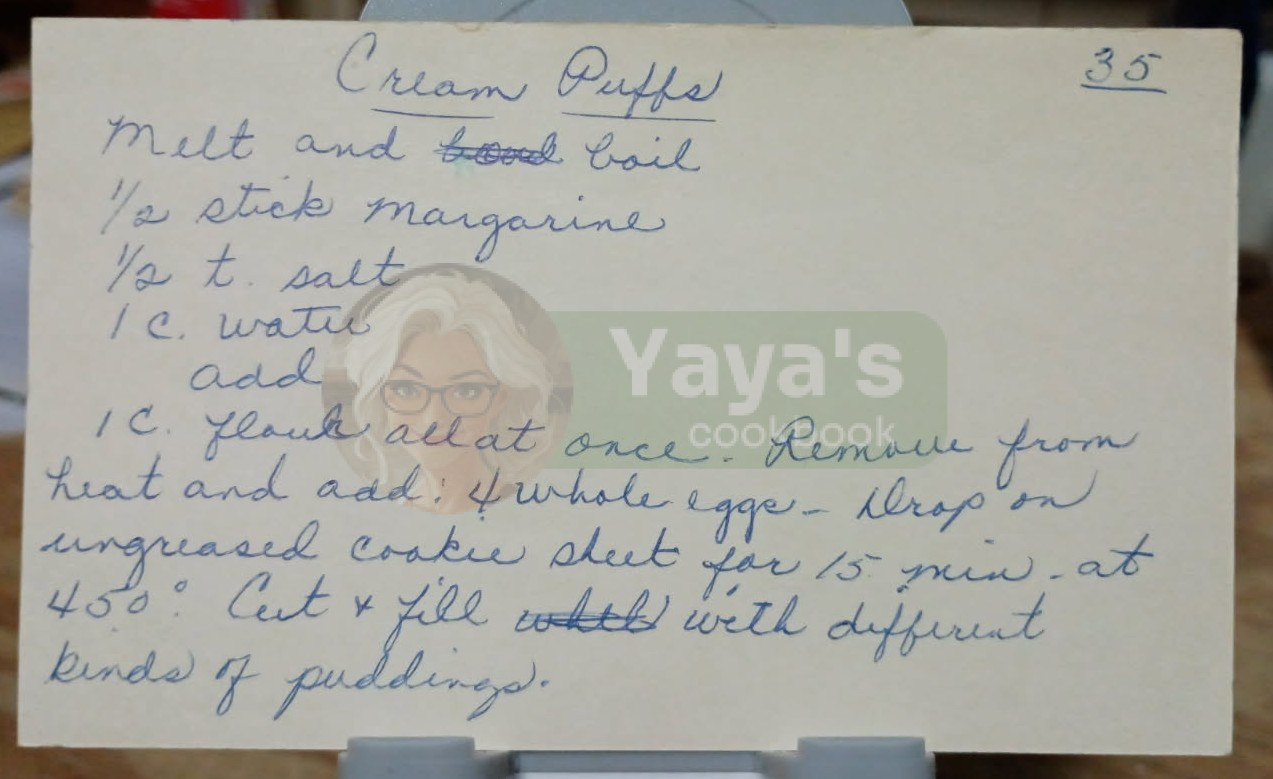 Cream Puffs
35
Melt and boil
1/2 stick margarine
1/2 t. salt
1 c. water
add
1 C. flour all at once. Remove from
heat and add: 4 whole eggs - Drop on
ungreased cookie sheet for 15 min. at
450°. Cut & fill with different
kinds of puddings.
Yaya's
cookbook